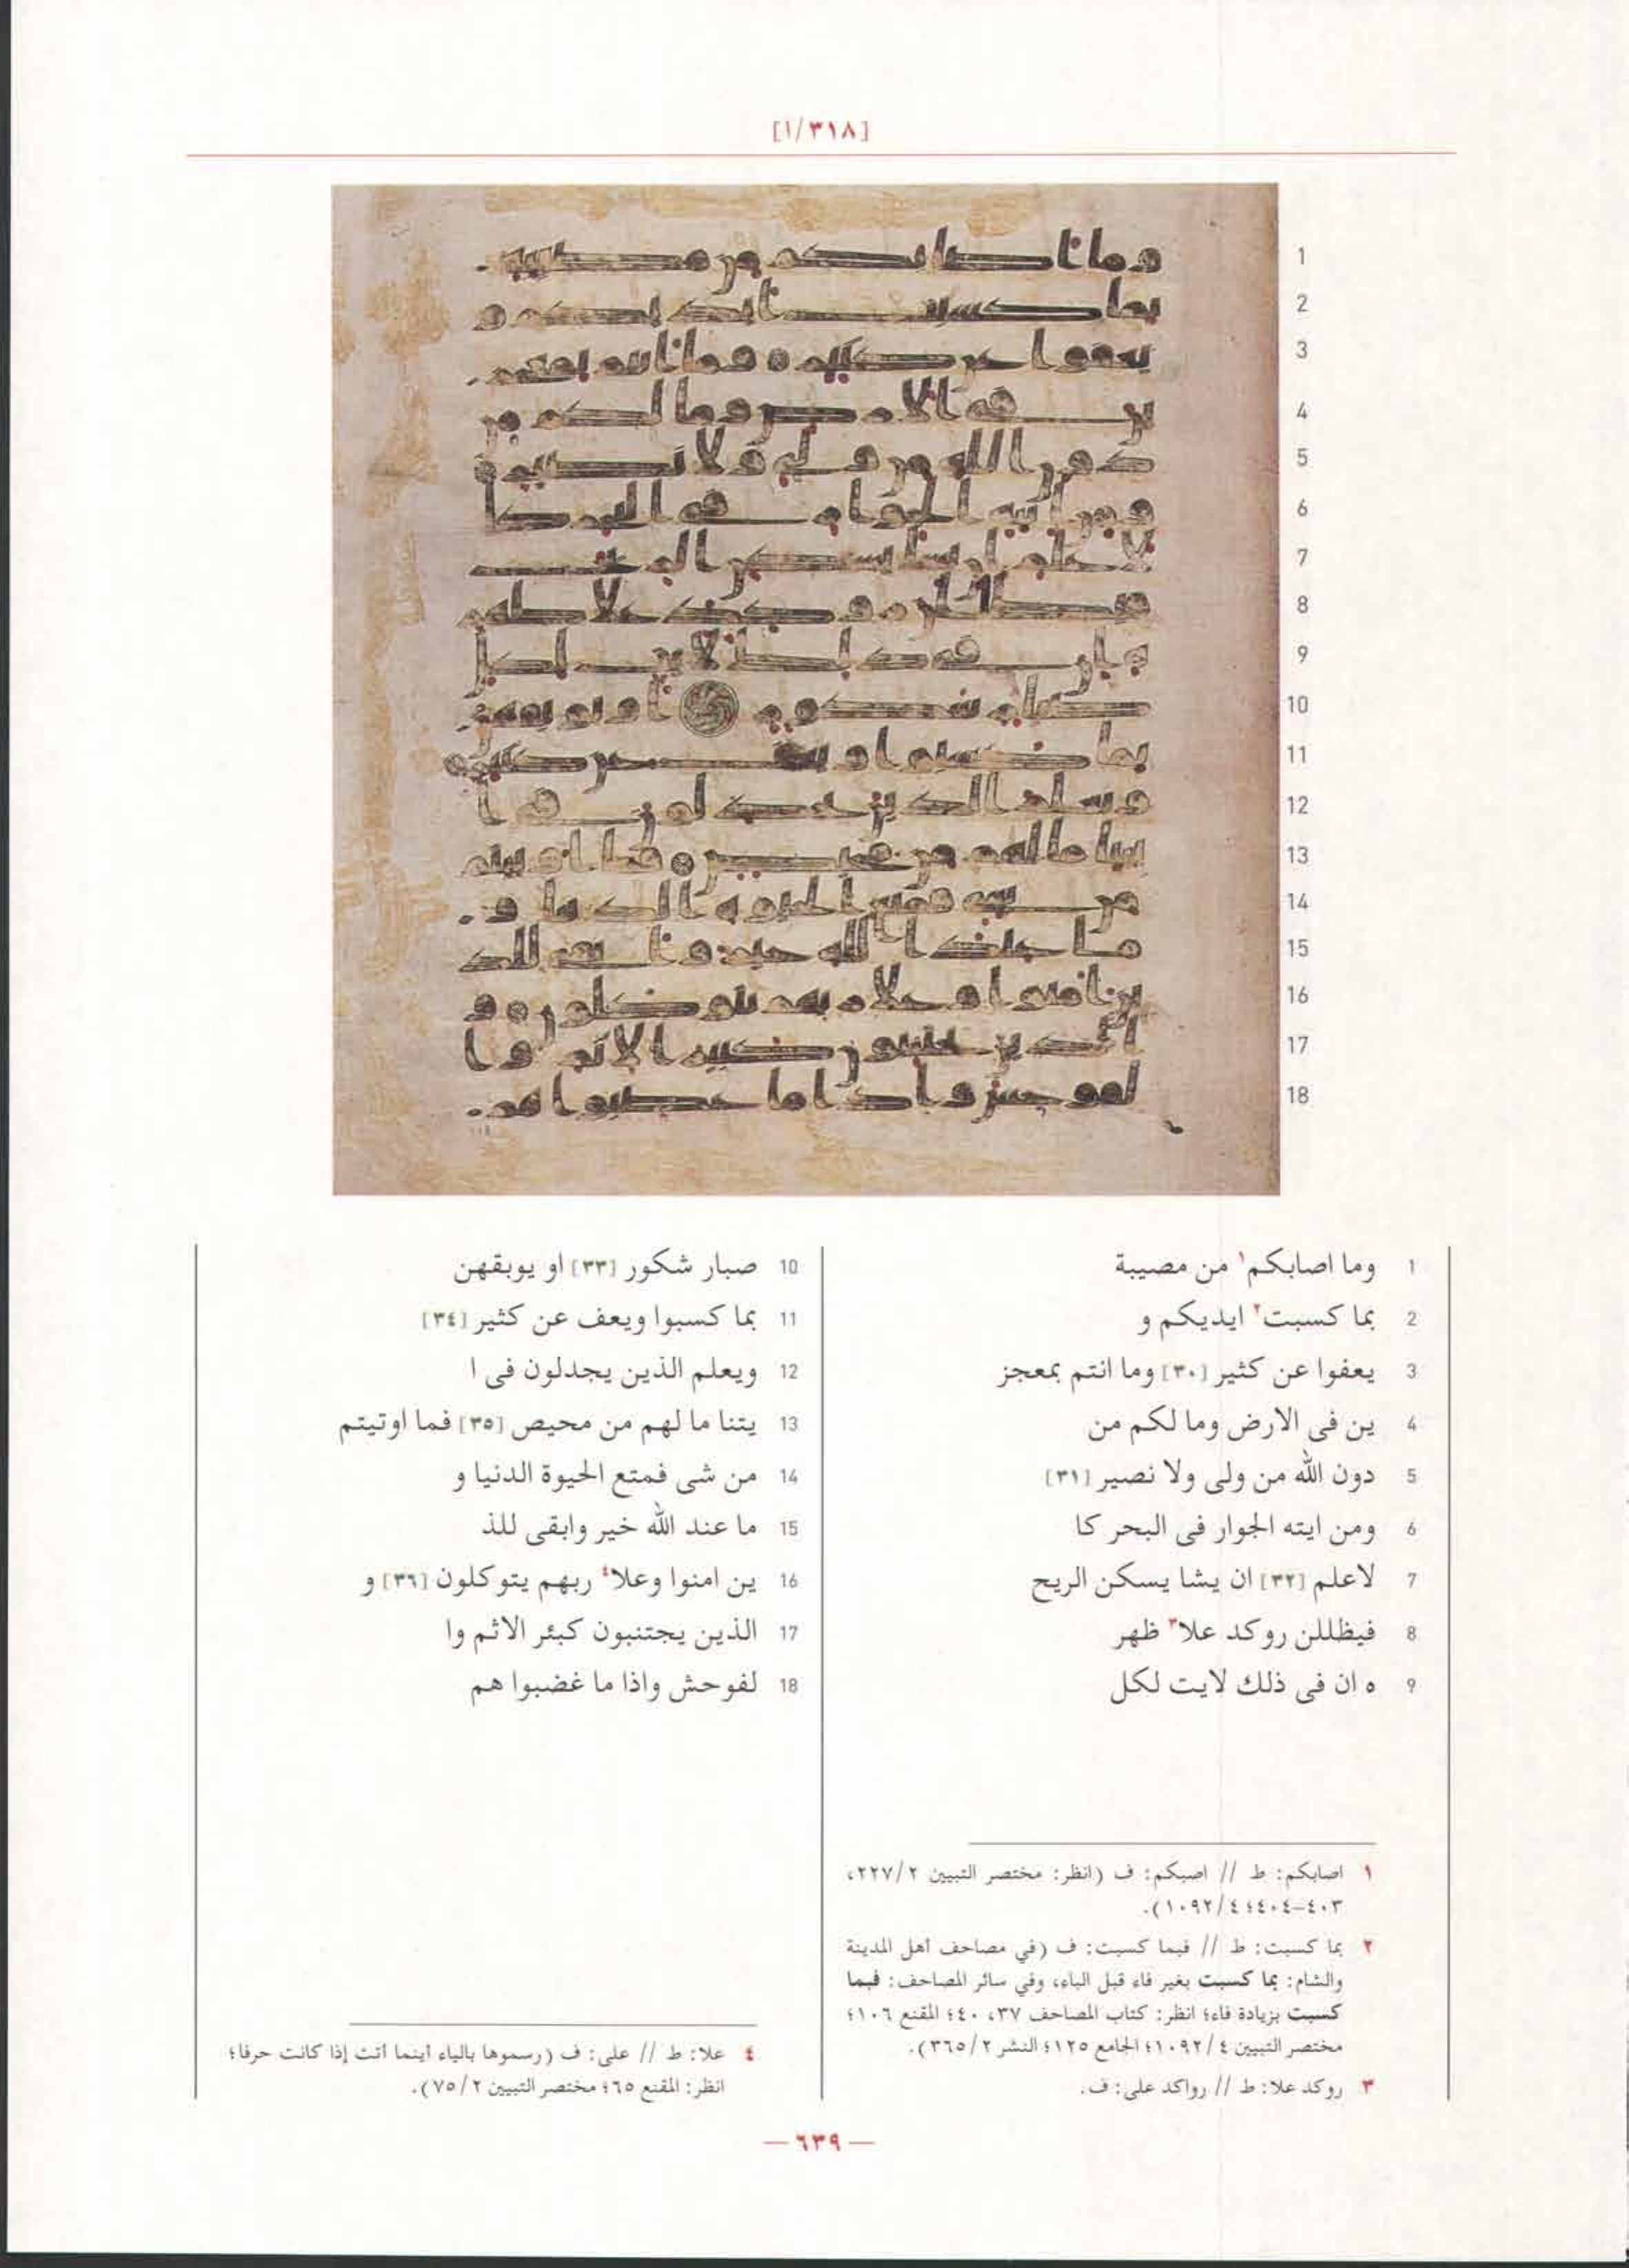 [٣١٨/١]
1 وما اصابكم١ من مصيبة
2 بما كسبت٢ ايديكم و
3 يعفوا عن كثير [٣٠] وما انتم بمعجز
4 ين فى الارض وما لكم من
5 دون الله من ولى ولا نصير [٣١]
6 ومن ايته الجوار فى البحر كا
7 لاعلم [٣٢] ان يشا يسكن الريح
8 فيظللن روكد علا٣ ظهر
9 ه ان فى ذلك لايت لكل
10 صبار شكور [٣٣] او يوبقهن
11 بما كسبوا ويعف عن كثير [٣٤]
12 ويعلم الذين يجدلون فى ا
13 يتنا ما لهم من محيص [٣٥] فما اوتيتم
14 من شى فمتع الحيوة الدنيا و
15 ما عند الله خير وابقى للذ
16 ين امنوا وعلا٤ ربهم يتوكلون [٣٦] و
17 الذين يجتنبون كبئر الاثم وا
18 لفوحش واذا ما غضبوا هم
١ اصابكم: ط // اصبكم: ف (انظر: مختصر التبيين ٢/٢٢٧،
٤٠٣-٤٠٤؛ ٤/١٠٩٢).
٢ بما كسبت: ط // فبما كسبت: ف (في مصاحف أهل المدينة
والشام: بما كسبت بغير فاء قبل الباء، وفي سائر المصاحف: فبما
كسبت بزيادة فاء؛ انظر: كتاب المصاحف ٣٧، ٤٠؛ المقنع ١٠٦؛
مختصر التبيين ٤/١٠٩٢؛ الجامع ١٢٥؛ النشر ٢/٣٦٥).
٣ روكد علا: ط // رواكد على: ف.
٤ علا: ط // على: ف (رسموها بالياء أينما أتت إذا كانت حرفا؛
انظر: المقنع ٦٥؛ مختصر التبيين ٢/٧٥).
— ٦٣٩ —